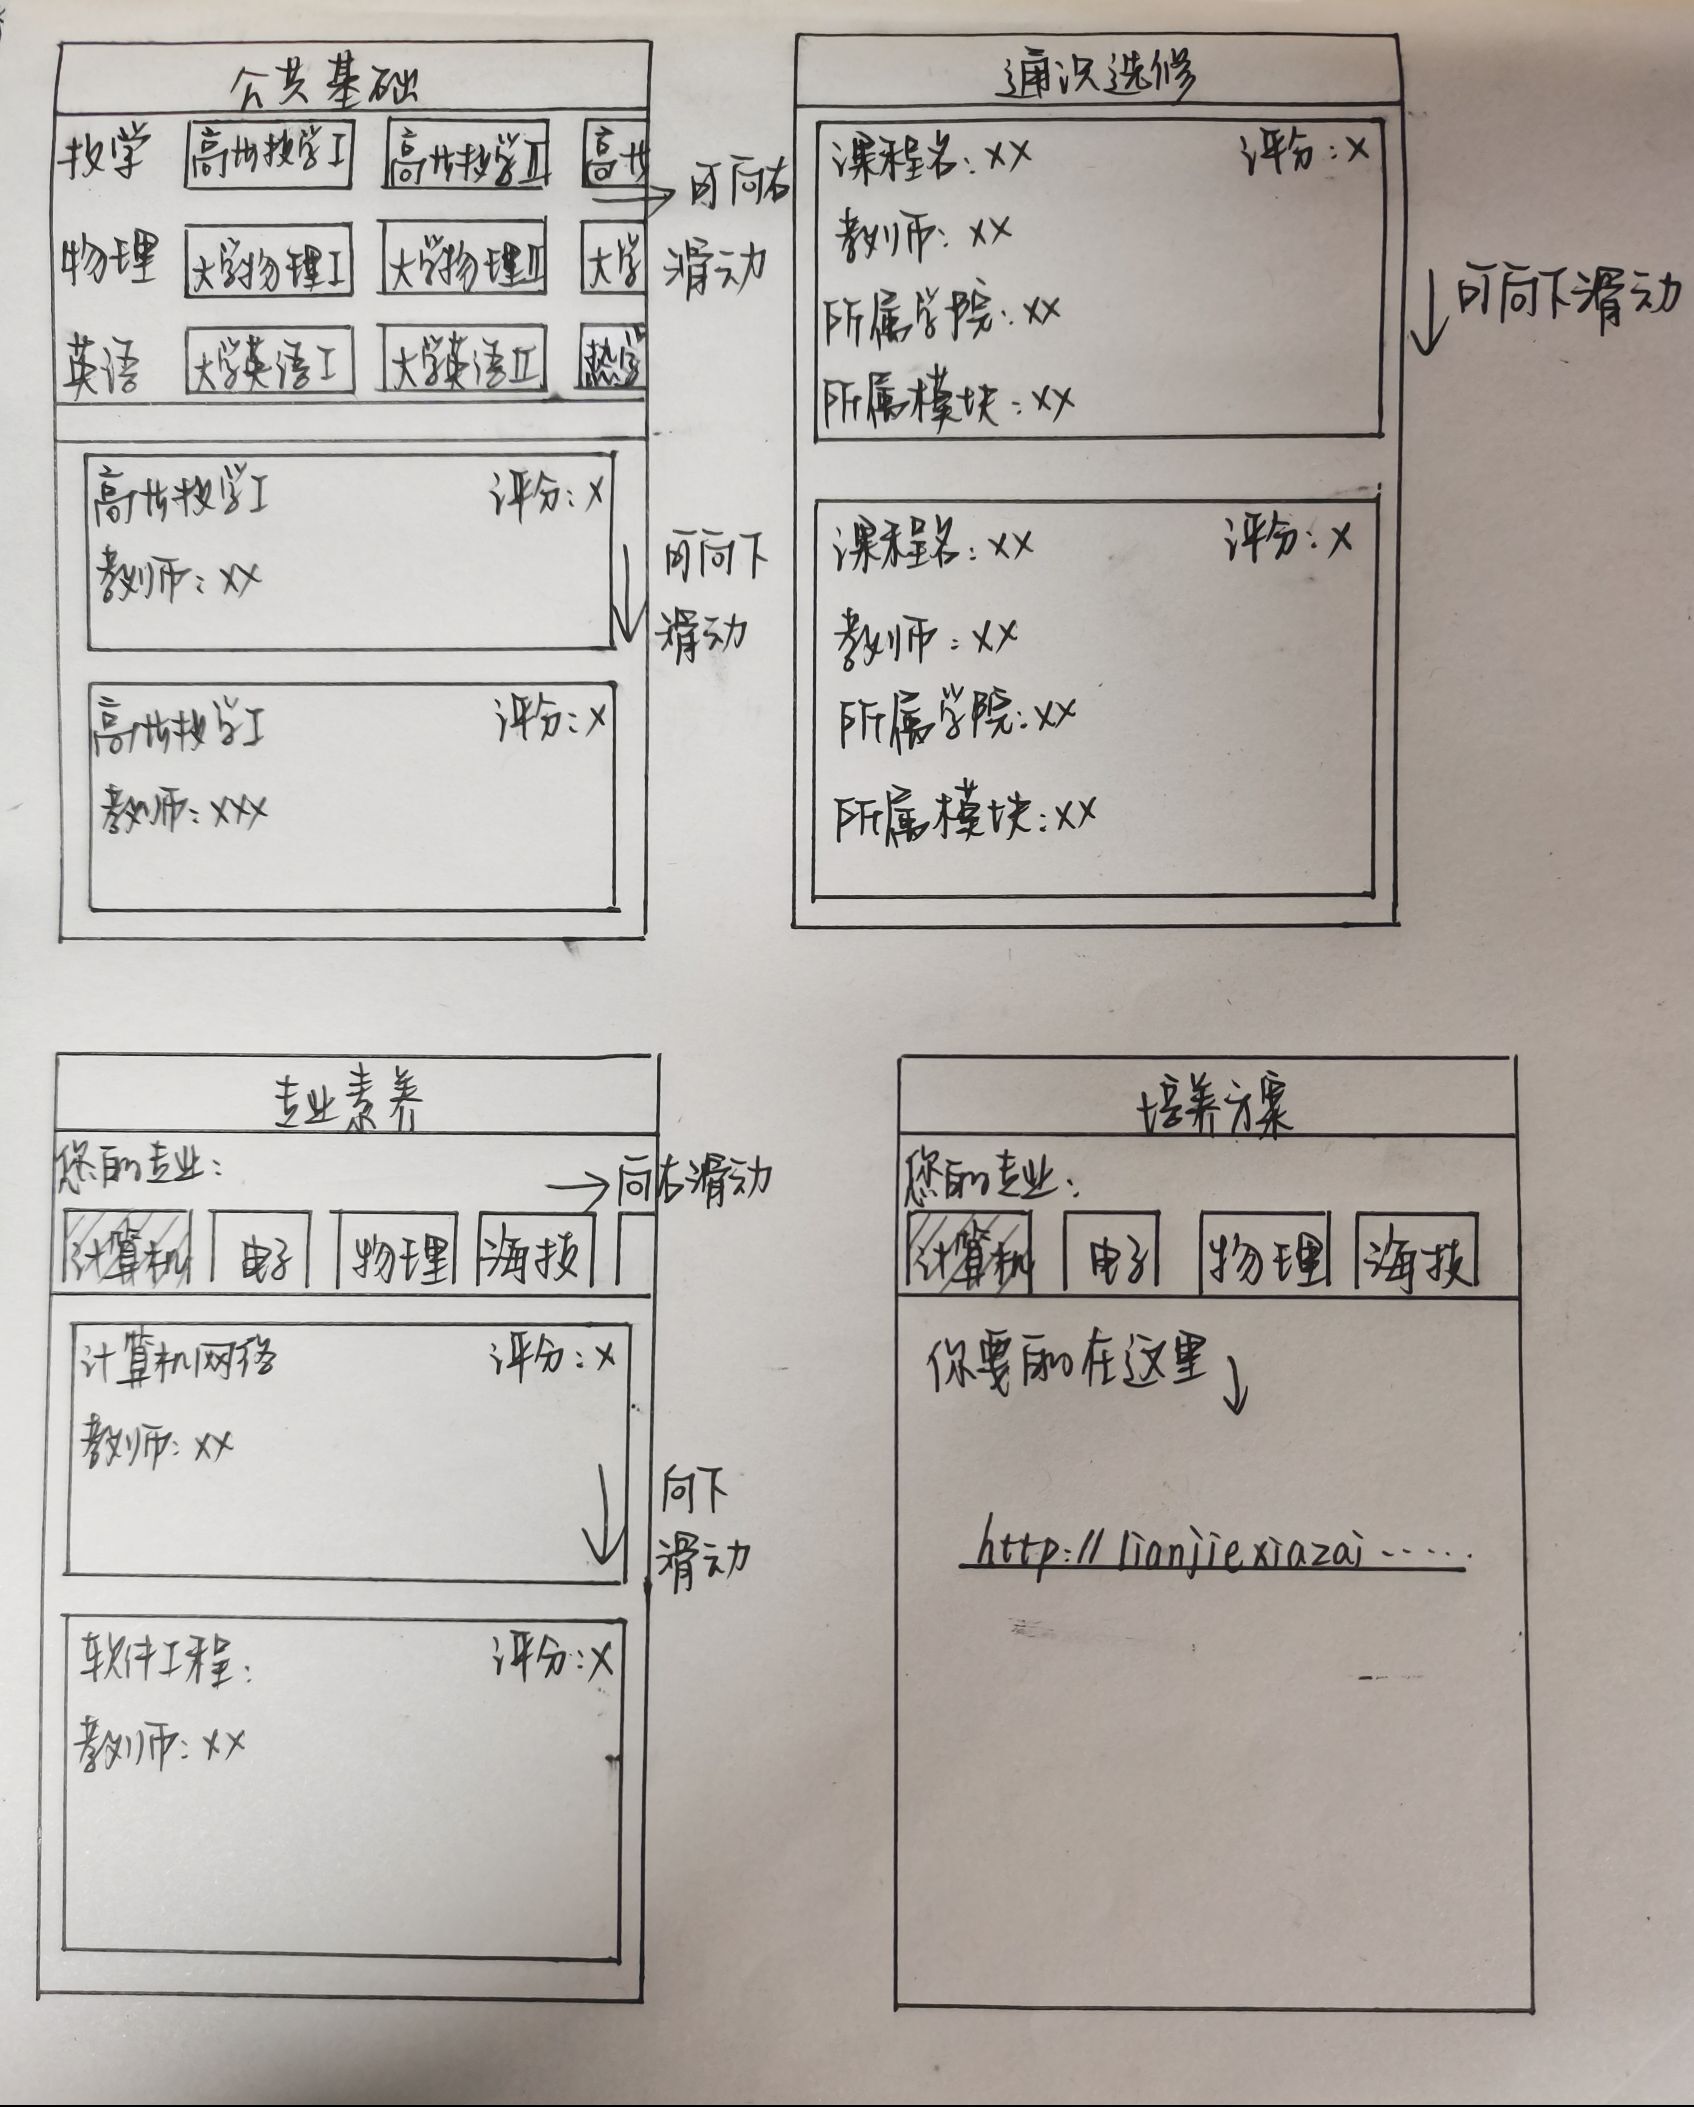 公共基础
数学 高等数学I 高等数学II 高等
可向右
滑动
物理 大学物理I 大学物理II 大学
英语 大学英语I 大学英语II
高等数学I 评分:x
教师:xx
可向下
滑动
高等数学I 评分:x
教师:xxx
通识选修
课程名:xx 评分:x
教师:xx
所属学院:xx
所属模块:xx
可向下滑动
课程名:xx 评分:x
教师:xx
所属学院:xx
所属模块:xx
专业素养
您的专业:
向右滑动
计算机 电子 物理 海技
计算机网络 评分:x
教师:xx
向下
滑动
软件工程: 评分:x
教师:xx
培养方案
您的专业:
计算机 电子 物理 海技
你要的在这里
http://lianjiexiazai......